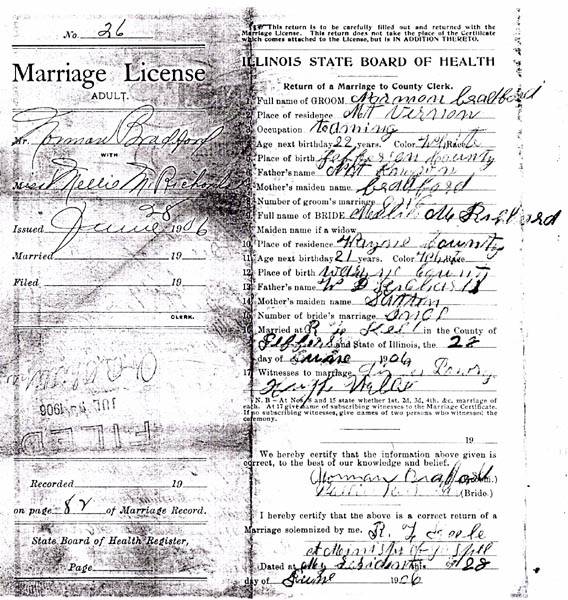 No. 26
Marriage License
ADULT.
Mr. Norman Bradford
WITH
M Nellie M Richards
Issued June 28 1906
Married 19
Filed 19
CLERK.
FILED
JUL 1906
Recorded 19
on page 82 of Marriage Record.
State Board of Health Register,
Page
This return is to be carefully filled out and returned with the
Marriage License. This return does not take the place of the Certificate
which comes attached to the License, but is IN ADDITION THERETO.
ILLINOIS STATE BOARD OF HEALTH
Return of a Marriage to County Clerk.
1. Full name of GROOM Norman Bradford
2. Place of residence Mt Vernon
3. Occupation Farming
4. Age next birthday 22 years. Color White Race
5. Place of birth Jefferson County
6. Father's name
7. Mother's maiden name Bradford
8. Number of groom's marriage
9. Full name of BRIDE Nellie M
Maiden name if a widow
10. Place of residence Wayne County
11. Age next birthday 21 years. Color White Race
12. Place of birth Wayne County
13. Father's name W
14. Mother's maiden name
15. Number of bride's marriage
16. Married at in the County of
and State of Illinois, the 28
day of June 1906
17. Witnesses to marriage
N. B - At Nos. 8 and 15 state whether 1st, 2d, 3d, 4th, &c, marriage of
each. At 17 give name of subscribing witnesses to the Marriage Certificate.
If no subscribing witnesses, give names of two persons who witnessed the
ceremony.
19
We hereby certify that the information above given is
correct, to the best of our knowledge and belief.
Norman Bradford
(Bride.)
I hereby certify that the above is a correct return of a
Marriage solemnized by me. R.
A Minister of Gospel
Dated at My Residence this 28
day of June 1906